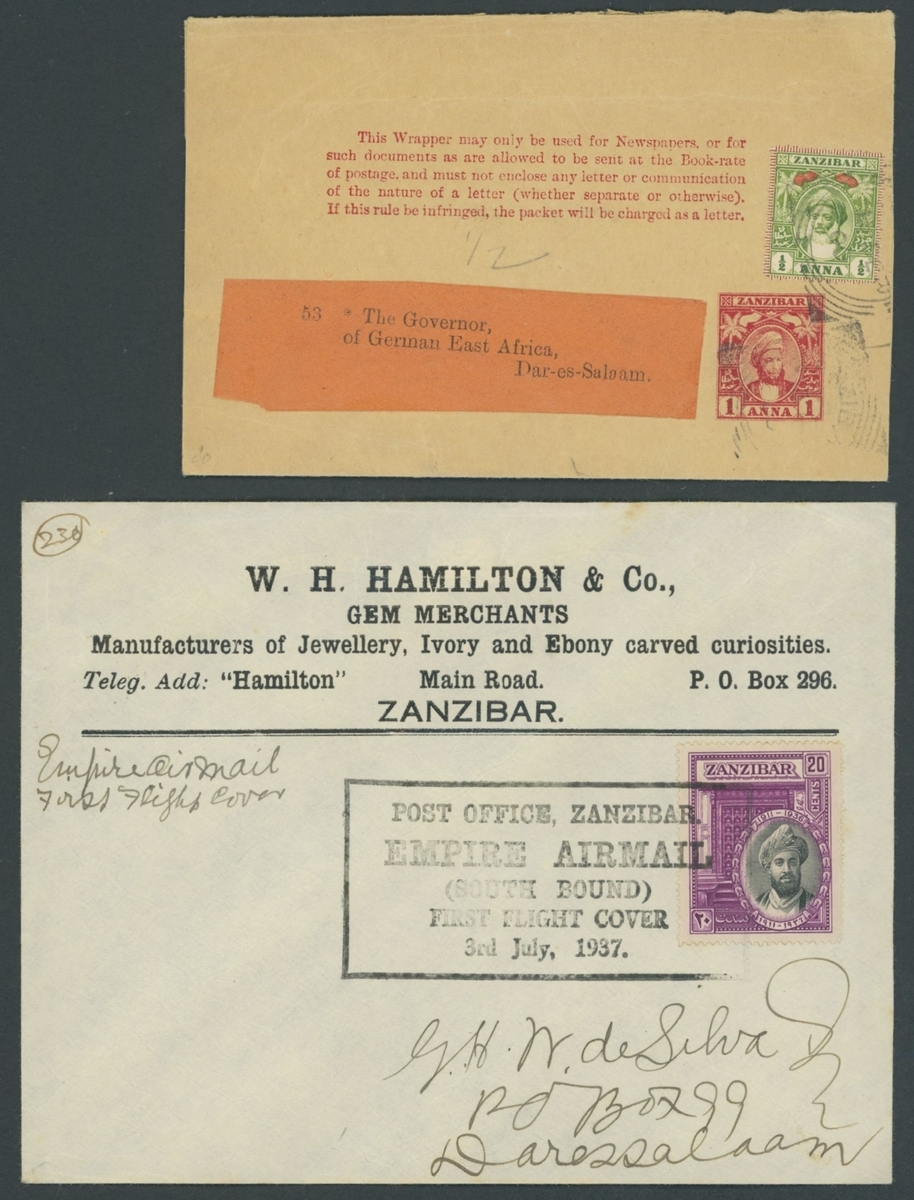 This Wrapper may only be used for Newspapers, or for
such documents as are allowed to be sent at the Book-rate
of postage, and must not enclose any letter or communication
of the nature of a letter (whether separate or otherwise).
If this rule be infringed, the packet will be charged as a letter.
1/2
ZANZIBAR
½ ANNA ½
53 * The Governor,
of German East Africa,
Dar-es-Salaam.
ZANZIBAR
1 ANNA 1
W. H. HAMILTON & Co.,
GEM MERCHANTS
Manufacturers of Jewellery, Ivory and Ebony carved curiosities.
Teleg. Add: "Hamilton" Main Road. P. O. Box 296.
ZANZIBAR.
Empire Airmail
First Flight Cover
POST OFFICE, ZANZIBAR.
EMPIRE AIRMAIL
(SOUTH BOUND)
FIRST FLIGHT COVER
3rd July, 1937.
ZANZIBAR 20
CENTS
1911-1936
٢٠
١٩١١-١٩٣٦
G. H. W. de Silva
P O Box 99
Daressalaam